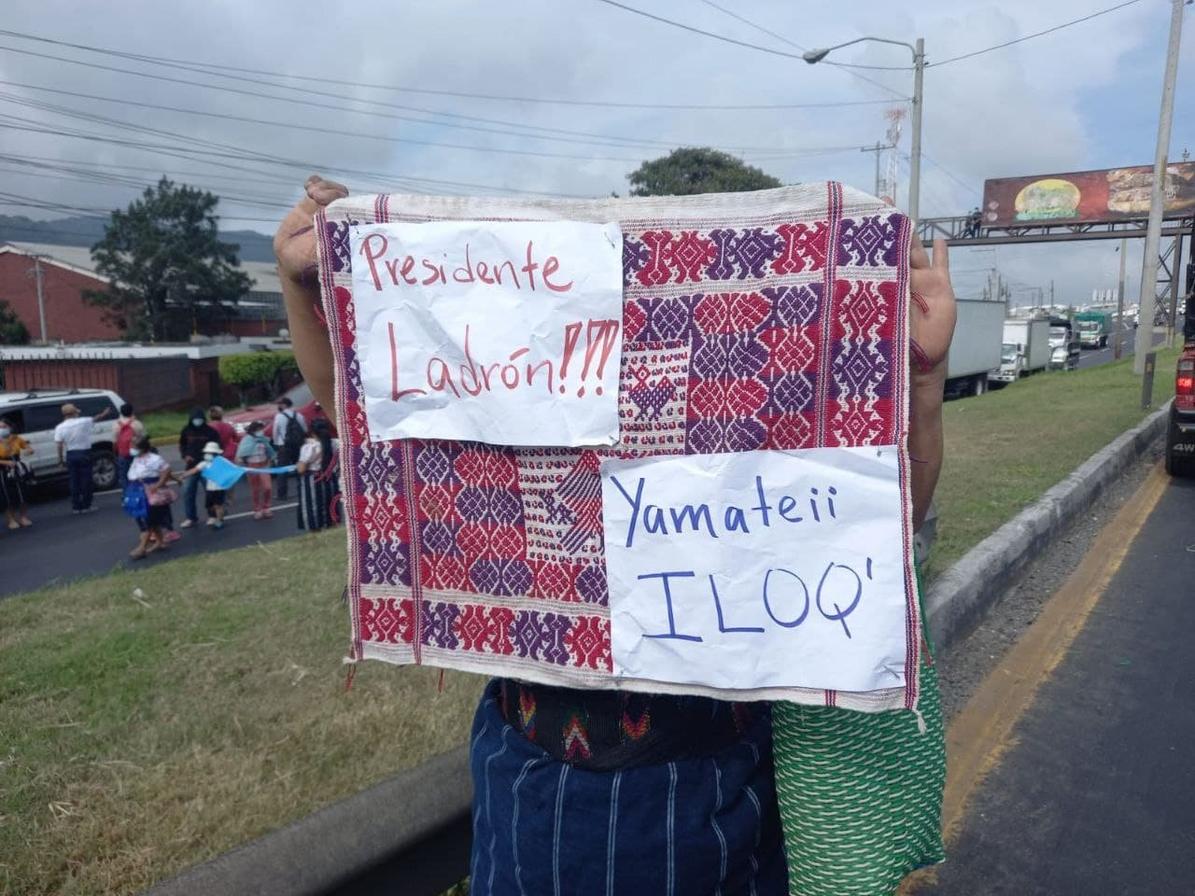 Presidente
Ladrón!!!
Yamateii
ILOQ'
4WD